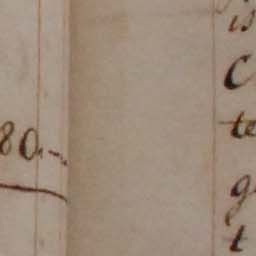 80.-
is
C
te
g
t